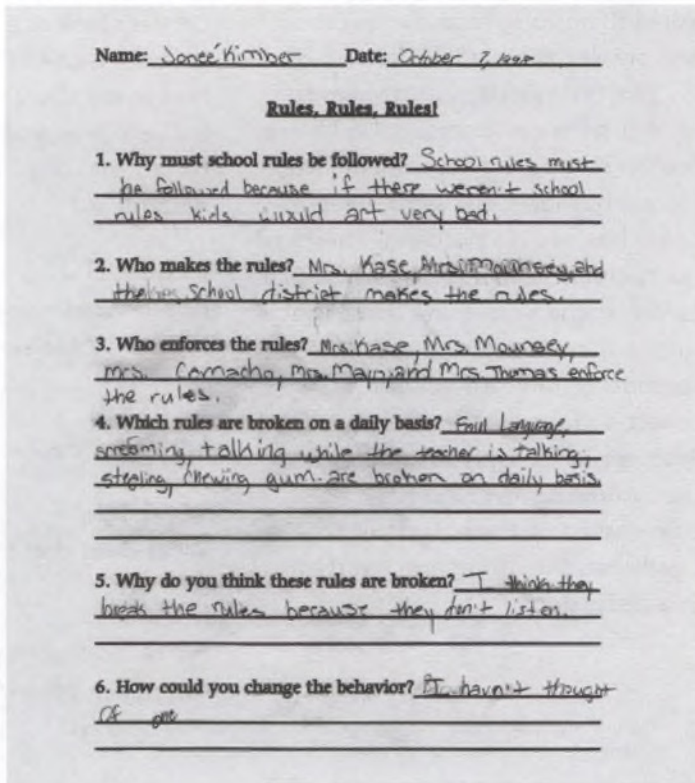 Name: Jonee' Kimber Date: October 7, 1998
Rules, Rules, Rules!
1. Why must school rules be followed? School rules must
be followed because if there weren't school
rules kids would act very bad.
2. Who makes the rules? Mrs. Kase, Mrs. Mounsey, and
the school district makes the rules.
3. Who enforces the rules? Mrs. Kase, Mrs. Mounsey,
mrs. Camacho, Mrs. Main, and Mrs. Thomas enforce
the rules.
4. Which rules are broken on a daily basis? Foul Language,
screaming, talking while the teacher is talking,
stealing, chewing gum are broken on daily basis.
5. Why do you think these rules are broken? I think they
break the rules because they don't listen.
6. How could you change the behavior? I havn't thought
of one